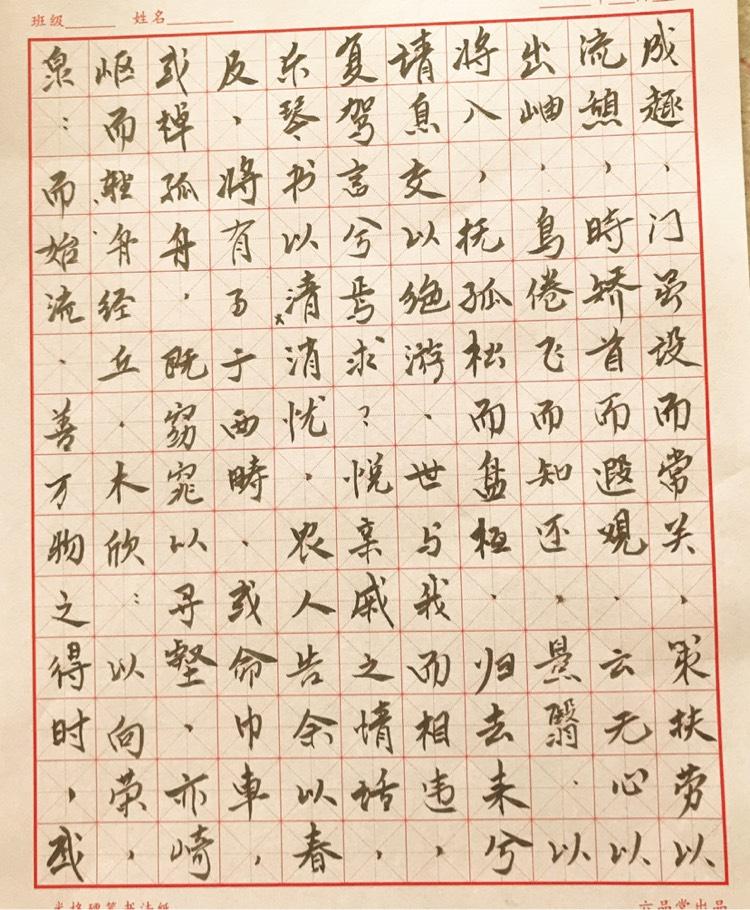 班级 姓名
成趣，门虽设而常关，策扶劳以
流憩，時矫首而遐观，云无心以
出岫，鸟倦飞而知还，景翳·以
将入，抚孤松而盘桓，归去来兮
请息交以绝游，世与我而相违，
复驾言兮焉求？悦亲戚之情话，
乐琴书以清消忧，农人告余以春
反，将有事于西畴，或命巾車，
或棹孤舟，既窈窕以寻壑，亦崎
岖而舟经丘，木欣：以向荣，
泉：而始流，善万物之得时，或